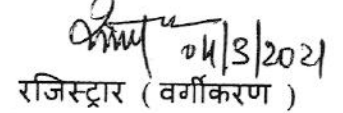 04/3/2021
रजिस्ट्रार ( वर्गीकरण )